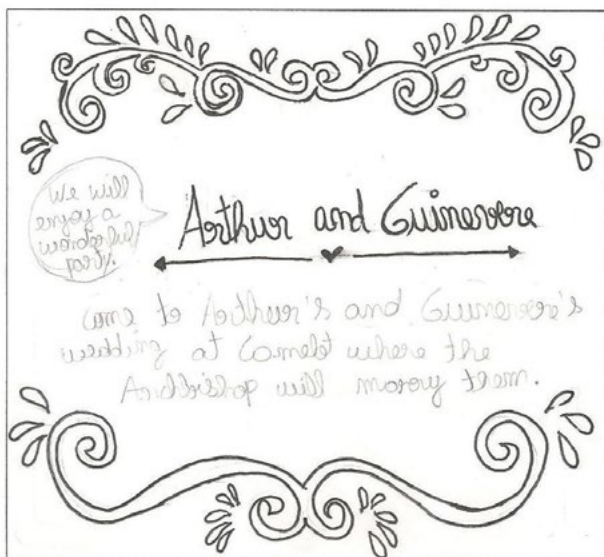 We will
Arthur and Guinevere
Come to Arthur's and Guinevere's
wedding at Camelt where the
Archbishop will marry them.